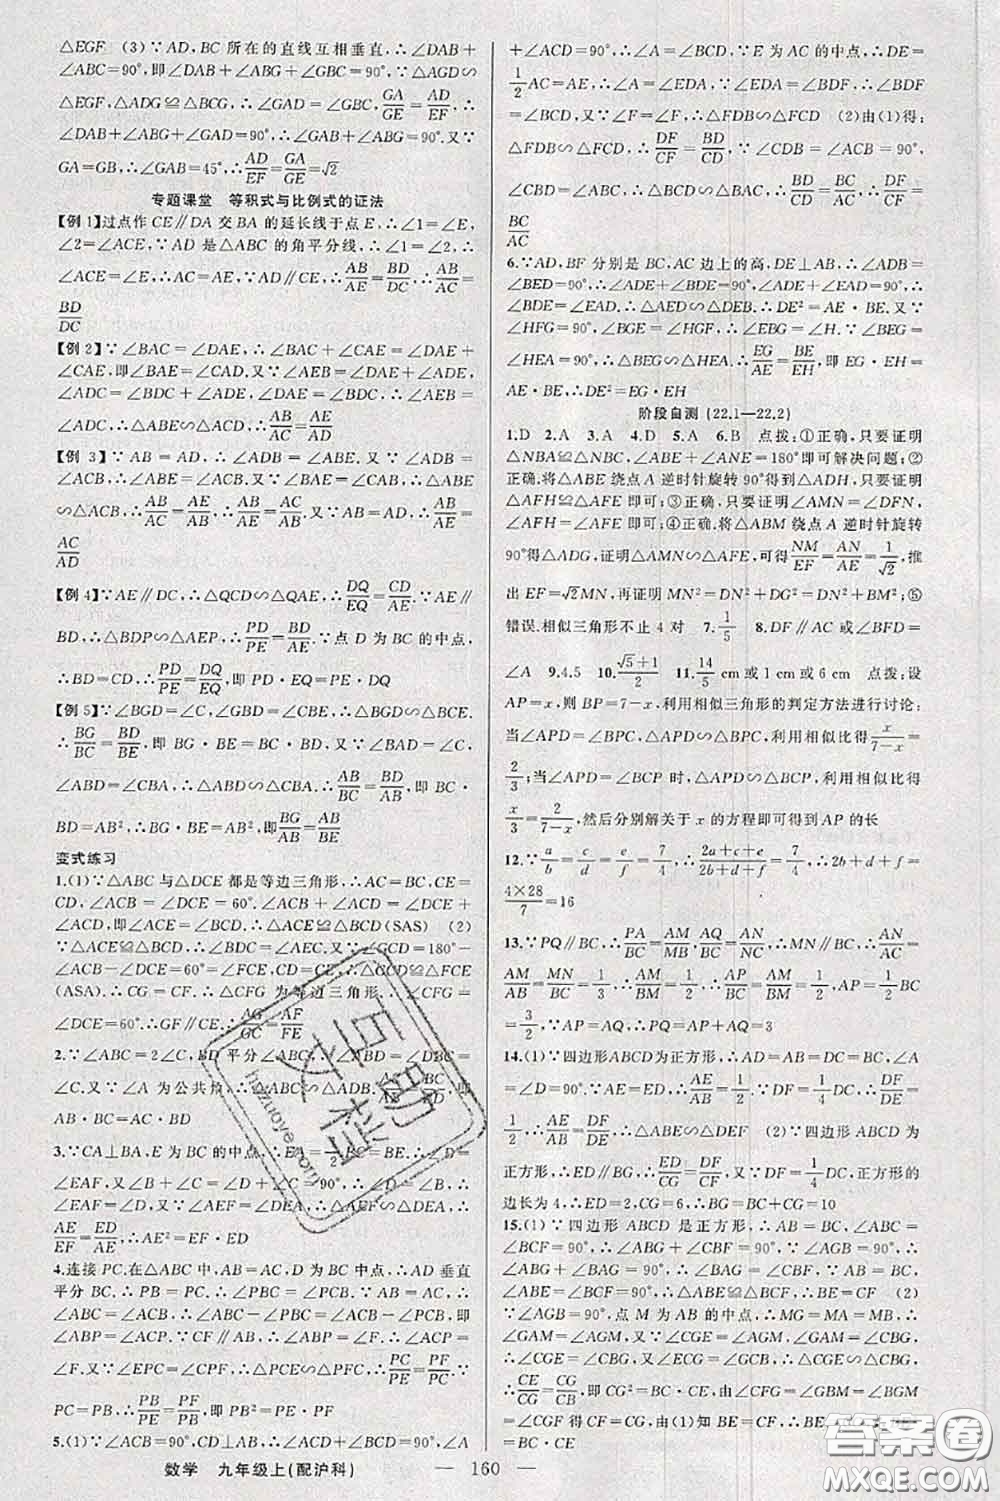 △EGF (3)∵AD,BC 所在的直线互相垂直,∴∠DAB+
∠ABC=90°,即∠DAB+∠ABG+∠GBC=90°,∵△AGD∽
△EGF,△ADG≌△BCG,∴∠GAD=∠GBC,GA/GE=AD/EF,∴
∠DAB+∠ABG+∠GAD=90°,∴∠GAB+∠ABG=90°.又∵
GA=GB,∴∠GAB=45°,∴AD/EF=GA/GE=√2
专题课堂 等积式与比例式的证法
【例 1】过点作 CE∥DA 交 BA 的延长线于点 E,∴∠1=∠E,
∠2=∠ACE,∵AD 是△ABC 的角平分线,∴∠1=∠2,∴
∠ACE=∠E,∴AC=AE,∵AD∥CE,∴AB/AE=BD/DC,∴AB/AC=
BD/DC
【例 2】∵∠BAC=∠DAE,∴∠BAC+∠CAE=∠DAE+
∠CAE,即∠BAE=∠CAD.又∵∠AEB=∠DAE+∠ADB,
∠ADC=∠BAC+∠ADB,∴∠AEB=∠ADC,∴△ABE∽
△ACD,∴AB/AC=AE/AD
【例 3】∵AB=AD,∴∠ADB=∠ABE.又∵∠ADB=
∠ACB,∴∠ABE=∠ACB.又∵∠BAE=∠CAB,∴△ABE
∽△ACB,∴AB/AC=AE/AB,∴AB/AE=AC/AB.又∵AB=AD,∴AB/AE=
AC/AD
【例 4】∵AE∥DC,∴△QCD∽△QAE,∴DQ/EQ=CD/AE.∵AE∥
BD,∴△PDB∽△AEP,∴PD/PE=BD/AE.∵点 D 为 BC 的中点,
∴BD=CD,∴PD/PE=DQ/EQ,即 PD·EQ=PE·DQ
【例 5】∵∠BGD=∠C,∠GBD=∠CBE,∴△BGD∽△BCE.
∴BG/BC=BD/BE,即 BG·BE=BC·BD,又∵∠BAD=∠C,
∠ABD=∠CBA,∴△ABD∽△CBA.∴AB/BC=BD/AB,即 BC·
BD=AB²,∴BG·BE=AB²,即BG/AB=AB/BE
变式练习
1.(1)∵△ABC 与△DCE 都是等边三角形,∴AC=BC,CE=
CD,∠ACB=∠DCE=60°.∴∠ACB+∠ACD=∠DCE+
∠ACD,即∠ACE=∠BCD.∴△ACE≌△BCD(SAS) (2)
∵△ACE≌△BCD,∴∠BDC=∠AEC.又∵∠GCD=180°-
∠ACB-∠DCE=60°=∠FCE,CD=CE,∴△GCD≌△FCE
(ASA).∴CG=CF.∴△CFG 为等边三角形,∴∠CFG=
∠DCE=60°.∴GF∥CE.∴AG/GC=AF/FE
2.∵∠ABC=2∠C,BD 平分∠ABC,∴∠ABD=∠DBC=
∠C.又∵∠A 为公共角,∴△ABC∽△ADB,∴ 即
AB·BC=AC·BD
3.∵CA⊥BA,E 为 BC 的中点,∴AE=BE,∴∠B=
∠EAF,又∵∠BAC=90°,∴∠B+∠C=90°,∴∠D=∠B,
∠EAF=∠D.又∵∠AEF=∠DEA,∴△EAF∽△EDA,
∴AE/EF=ED/AE,∴AE²=EF·ED
4.连接 PC.在△ABC 中,AB=AC,D 为 BC 中点,∴AD 垂直
平分 BC.∴PB=PC,∴∠PBC=∠PCB.∵AB=AC,∴
∠ABC=∠ACB,∴∠ABC-∠PBC=∠ACB-∠PCB,即
∠ABP=∠ACP.∵CF∥AB,∴∠ABP=∠F.∴∠ACP=
∠F.又∵∠EPC=∠CPF,∴△PCE∽△PFC,∴PC/PF=PE/PC.∵
PC=PB,∴PB/PE=PF/PB
5.(1)∵∠ACB=90°,CD⊥AB,∴∠ACD+∠BCD=90°,∠A
+∠ACD=90°,∴∠A=∠BCD,∵E 为 AC 的中点,∴DE=
1/2AC=AE,∴∠A=∠EDA,∵∠EDA=∠BDF,∴∠BDF
=∠BCD,又∵∠F=∠F,∴△FDB∽△FCD (2)由(1)得:
△FDB∽△FCD,∴DF/CF=BD/CD,∵∠BDC=∠ACB=90°,
∠CBD=∠ABC,∴△BDC∽△BCA,∴BD/BC=CD/AC,∴DF/CF=
BC/AC
6.∵AD,BF 分别是 BC,AC 边上的高,DE⊥AB,∴∠AED=
∠BED=90°,∴∠ADE+∠BDE=90°,∠ADE+∠EAD=90°,∴
∠BDE=∠EAD.∴△AED∽△DEB.∴DE²=AE·BE.又∵
∠HFG=90°,∴∠BGE=∠HGF,∴∠EBG=∠H.∵∠BEG=
∠HEA=90°,∴△BEG∽△HEA,∴EG/AE=BE/EH,即 EG·EH=
AE·BE,∴DE²=EG·EH
阶段自测 (22.1—22.2)
1.D 2.A 3.A 4.D 5.A 6.B 点拨:①正确,只要证明
△NBA≌△NBC,∠ABE+∠ANE=180°即可解决问题;②
正确.将△ABE 绕点 A 逆时针旋转 90°得到△ADH,只要证明
△AFH≌△AFE 即可;③正确,只要证明∠AMN=∠DFN,
∠AFH=∠AFE 即可;④正确.将△ABM 绕点 A 逆时针旋转
90°得△ADG,证明△AMN∽△AFE,可得NM/EF=AN/AE=1/√2,推
出 EF=√2MN,再证明 MN²=DN²+DG²=DN²+BM²;⑤
错误.相似三角形不止 4 对 7.1/5 8.DF∥AC 或∠BFD=
∠A 9.4.5 10.(√5+1)/2 11.14/5 cm或1 cm或6 cm 点拨:设
AP=x,则 BP=7-x,利用相似三角形的判定方法进行讨论:
当∠APD=∠BPC,△APD∽△BPC,利用相似比得x/(7-x)=
2/3;当∠APD=∠BCP 时,△APD∽△BCP,利用相似比得
x/3=2/(7-x),然后分别解关于 x 的方程即可得到 AP 的长
12.∵a/b=c/d=e/f=7/4,∴(2a+c+e)/(2b+d+f)=7/4,∴2b+d+f=
4×28/7=16
13.∵PQ∥BC,∴PA/BC=AM/MB,AQ/BC=AN/NC,∴MN∥BC,∴AN/AC=
AM/AB=MN/BC=1/3,∴AM/BM=1/2,∴AP/BC=AM/BM=1/2,∴AP=1/2BC=
3/2,∵AP=AQ,∴PQ=AP+AQ=3
14.(1)∵四边形ABCD为正方形,∴AD=AB=DC=BC,∠A
=∠D=90°.∵AE=ED,∴AE/AB=1/2.∵DF=1/4DC,∴DF/DE=
1/2,∴AE/AB=DF/DE,∴△ABE∽△DEF (2)∵四边形 ABCD 为
正方形,∴ED∥BG,∴ED/CG=DF/CF,又∵DF=1/4DC,正方形的
边长为 4,∴ED=2,CG=6,∴BG=BC+CG=10
15.(1)∵四边形 ABCD 是正方形,∴AB=BC,∠ABC=
∠BCF=90°,∴∠ABG+∠CBF=90°,∵∠AGB=90°,∴
∠ABG+∠BAG=90°,∴∠BAG=∠CBF,∵AB=BC,
∠ABE=∠BCF=90°,∴△ABE≌△BCF,∴BE=CF (2)
∵∠AGB=90°,点 M 为 AB 的中点,∴MG=MA=MB,∴
∠GAM=∠AGM,又∵∠CGE=∠AGM,∠GAM=∠CBG,
∴∠CGE=∠CBG,又∠ECG=∠GCB,∴△CGE∽△CBG,
∴CE/CG=CG/CB,即 CG²=BC·CE,由∠CFG=∠GBM=∠BGM=
∠CGF 得 CF=CG,由(1)知 BE=CF,∴BE=CG,∴BE²=
BC·CE
数学 九年级上(配沪科) — 160 —
百助文档
hazuoye.com
答案圈
MXQE.COM